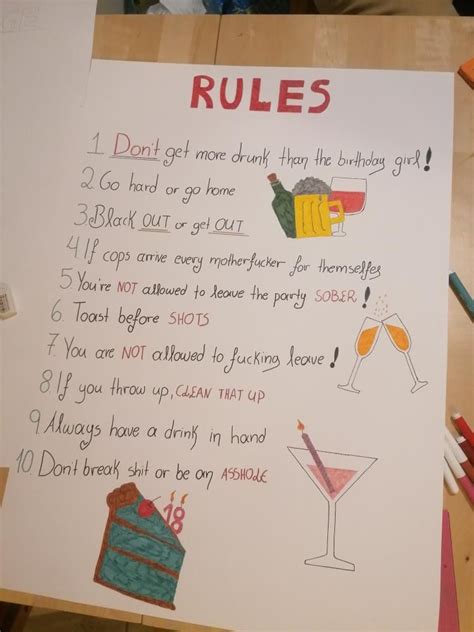 RULES
1 Don't get more drunk than the birthday girl!
2. Go hard or go home
3. Black OUT or get OUT
4. If cops arrive every motherfucker for themselfes
5 You're NOT allowed to leave the party SOBER!
6. Toast before SHOTS
7. You are NOT allowed to fucking leave!
8. If you throw up, CLEAN THAT UP
9. Always have a drink in hand
10. Don't break shit or be an ASSHOLE
18